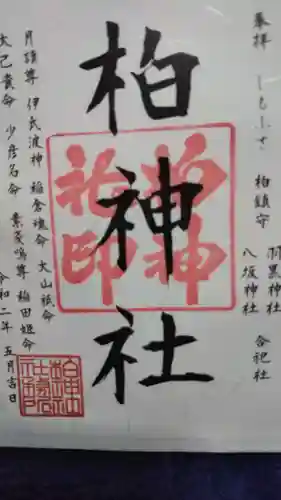 奉拝 しもふさ 柏鎮守
羽黒神社
八坂神社
合祀社
柏神社
柏神社印
月読尊 伊氏波神 稲倉魂命 大山祇命
大己貴命 少彦名命 素戔嗚尊 稲田姫命
令和二年 五月吉日